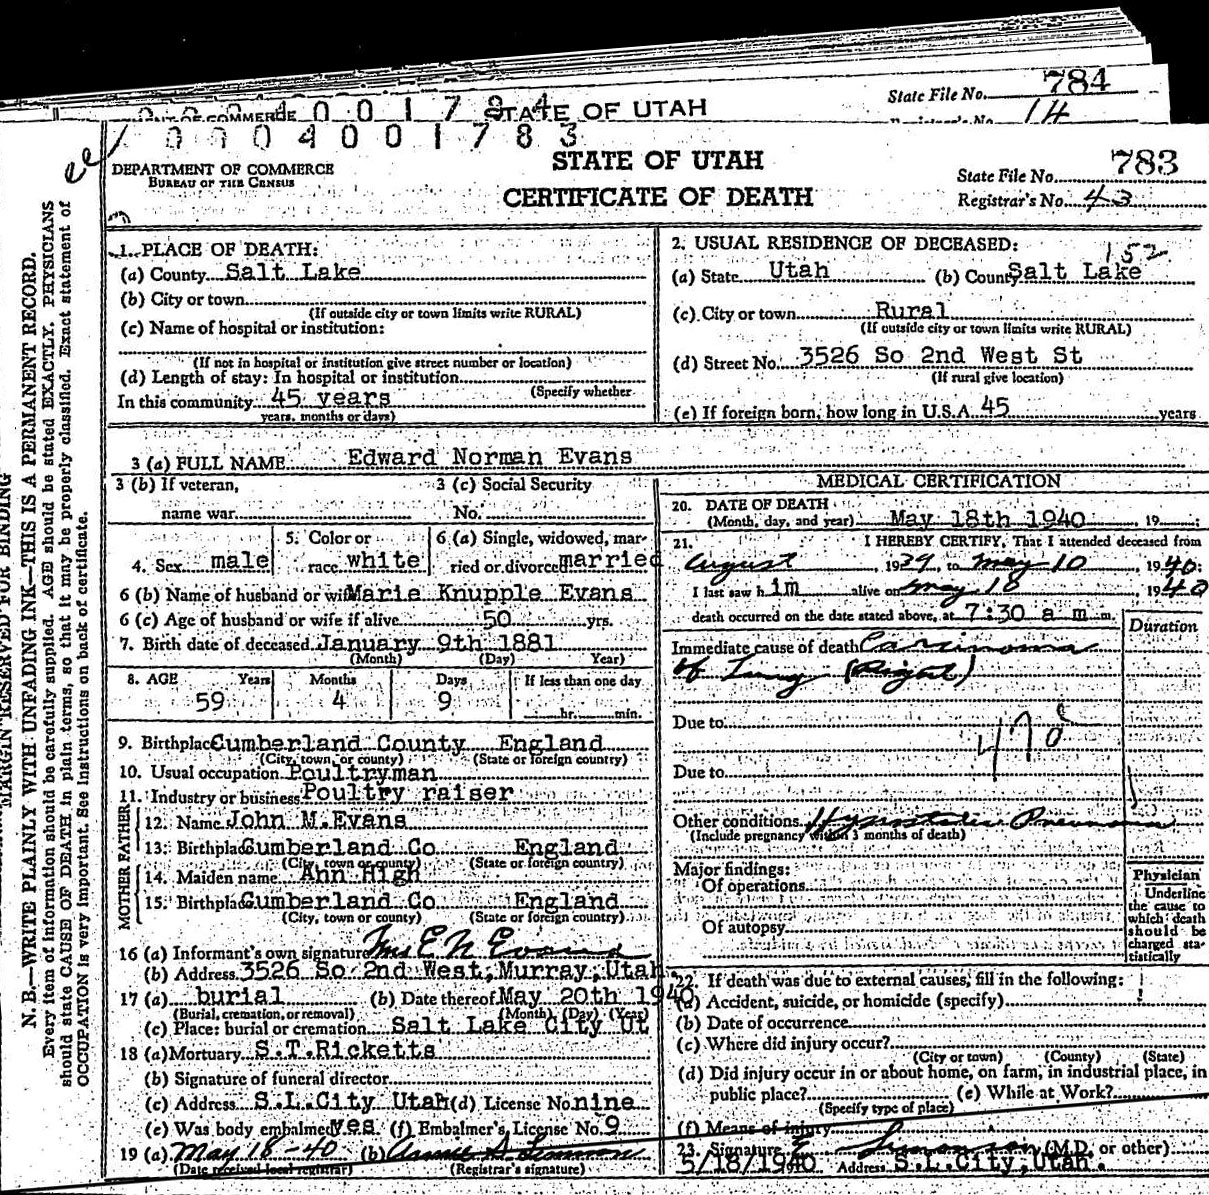 784
State File No.
0 0 0 4 0 0 1 7 8 4
STATE OF UTAH
14
0 0 0 4 0 0 1 7 8 3
DEPARTMENT OF COMMERCE
BUREAU OF THE CENSUS
STATE OF UTAH
CERTIFICATE OF DEATH
State File No. 783
Registrar's No. 43
MARGIN RESERVED FOR BINDING
N. B.—WRITE PLAINLY WITH UNFADING INK—THIS IS A PERMANENT RECORD.
Every item of information should be carefully supplied. AGE should be stated EXACTLY. PHYSICIANS
should state CAUSE OF DEATH in plain terms, so that it may be properly classified. Exact statement of
OCCUPATION is very important. See instructions on back of certificate.
1. PLACE OF DEATH:
(a) County Salt Lake
(b) City or town
(If outside city or town limits write RURAL)
(c) Name of hospital or institution:
(If not in hospital or institution give street number or location)
(d) Length of stay: In hospital or institution
(Specify whether
In this community 45 years
years, months or days)
2. USUAL RESIDENCE OF DECEASED:
152
(a) State Utah (b) County Salt Lake
(c) City or town Rural
(If outside city or town limits write RURAL)
(d) Street No. 3526 So 2nd West St
(If rural give location)
(e) If foreign born, how long in U.S.A. 45 years
3 (a) FULL NAME Edward Norman Evans
3 (b) If veteran,
name war
3 (c) Social Security
No.
4. Sex male
5. Color or
race white
6 (a) Single, widowed, mar-
ried or divorced married
6 (b) Name of husband or wife Marie Knupple Evans
6 (c) Age of husband or wife if alive 50 yrs.
7. Birth date of deceased January 9th 1881
(Month) (Day) Year)
8. AGE Years Months Days If less than one day
59 4 9 hr. min.
9. Birthplace Cumberland County England
(City, town, or county) (State or foreign country)
10. Usual occupation Poultryman
11. Industry or business Poultry raiser
FATHER
12. Name John M.Evans
13. Birthplace Cumberland Co England
(City, town or county) (State or foreign country)
MOTHER
14. Maiden name Ann High
15. Birthplace Cumberland Co England
(City, town or county) (State or foreign country)
16 (a) Informant's own signature Mrs E N Evans
(b) Address 3526 So 2nd West, Murray, Utah
17 (a) burial (b) Date thereof May 20th 1940
(Burial, cremation, or removal) (Month) (Day) (Year)
(c) Place: burial or cremation Salt Lake City Ut
18 (a) Mortuary S.T.Ricketts
(b) Signature of funeral director
(c) Address S.L.City Utah (d) License No. nine
(e) Was body embalmed yes (f) Embalmer's License No. 9
19 (a) May 18-40 (b)
(Date received local registrar) (Registrar's signature)
MEDICAL CERTIFICATION
20. DATE OF DEATH
(Month, day, and year) May 18th 1940, 19 ;
21. I HEREBY CERTIFY, That I attended deceased from
August, 1939, to May 10, 1940;
I last saw him alive on May 18, 1940
death occurred on the date stated above, at 7:30 a m m.
Duration
Immediate cause of death Carcinoma
of Lung (Right)
Due to
Due to
Other conditions Hypostatic Pneumonia
(Include pregnancy within 3 months of death)
Major findings:
Of operations
Of autopsy
Physician
Underline
the cause to
which death
should be
charged sta-
tistically
22. If death was due to external causes, fill in the following:
(a) Accident, suicide, or homicide (specify)
(b) Date of occurrence
(c) Where did injury occur?
(City or town) (County) (State)
(d) Did injury occur in or about home, on farm, in industrial place, in
public place? (e) While at Work?
(Specify type of place)
(f) Means of injury
23. Signature (M.D. or other)
5/18/1940 Address S.L.City, Utah.